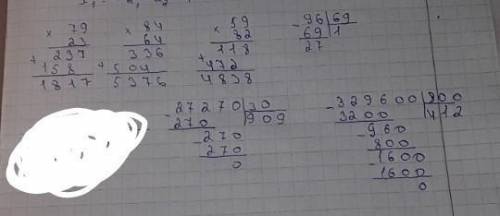 × 79 × 84 × 59 - 96|69
23 64 82 69|1
237 336 118 27
+ 158 + 504 + 472
1817 5376 4838
- 27270|30 - 329600|800
270|909 3200|412
- 270 - 960
270 800
0 - 1600
1600
0